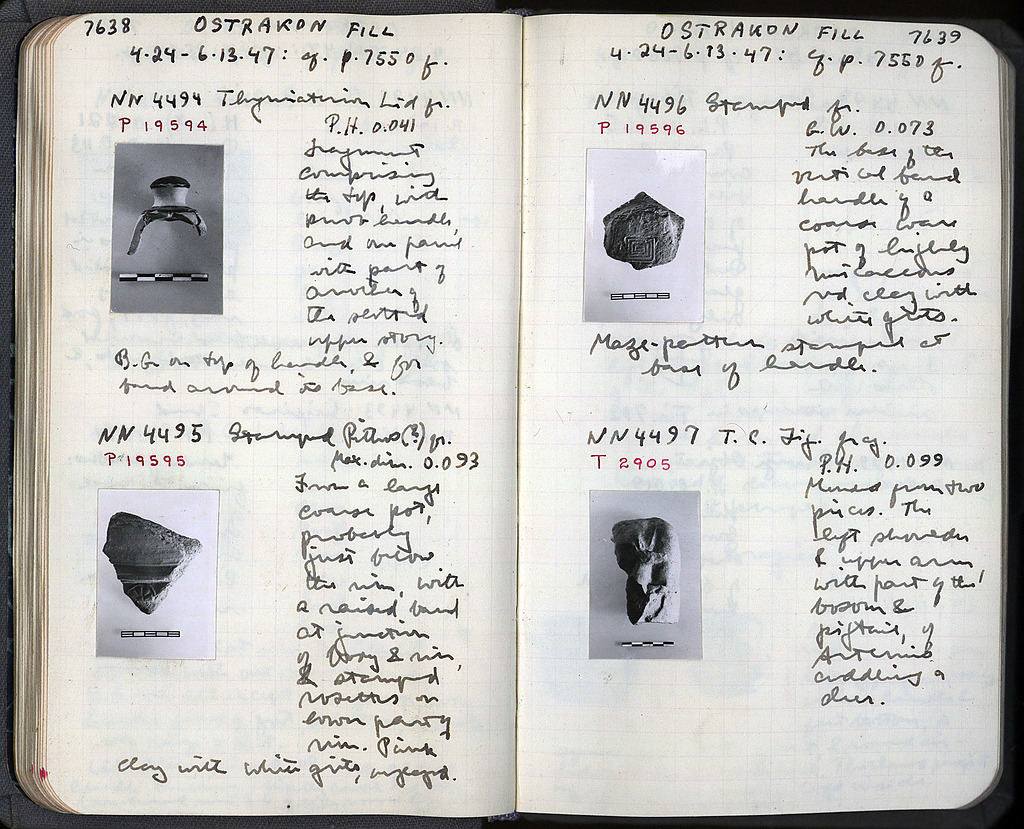 7638 OSTRAKON FILL
4·24-6·13·47: cf. p. 7550 f.
NN 4494 Thymiaterion Lid fr.
P 19594 P.H. 0.041
Fragment
comprising
the top, with
knob handle,
and one panel
with part of
another of
the slotted
upper story.
B.G. on top of handle, & for
band around its base.
NN 4495 Stamped Pithos(?) fr.
P 19595 Max. dim. 0.093
From a large
coarse pot,
probably
just below
the rim, with
a raised band
at junction
of body & rim,
& stamped
rosettes on
lower part of
rim. Pink
clay with white grits, unglazed.
OSTRAKON FILL 7639
4·24-6·13·47: cf. p. 7550 f.
NN 4496 Stamped fr.
P 19596 G.W. 0.073
The base of the
vertical band
handle of a
coarse ware
pot of highly
micaceous
red clay with
white grits.
Maze-pattern stamped at
base of handle.
NN 4497 T.C. Fig. frag.
T 2905 P.H. 0.099
Mended from two
pieces. The
left shoulder
& upper arm
with part of the
bosom &
pigtail, of
Artemis
cuddling a
deer.